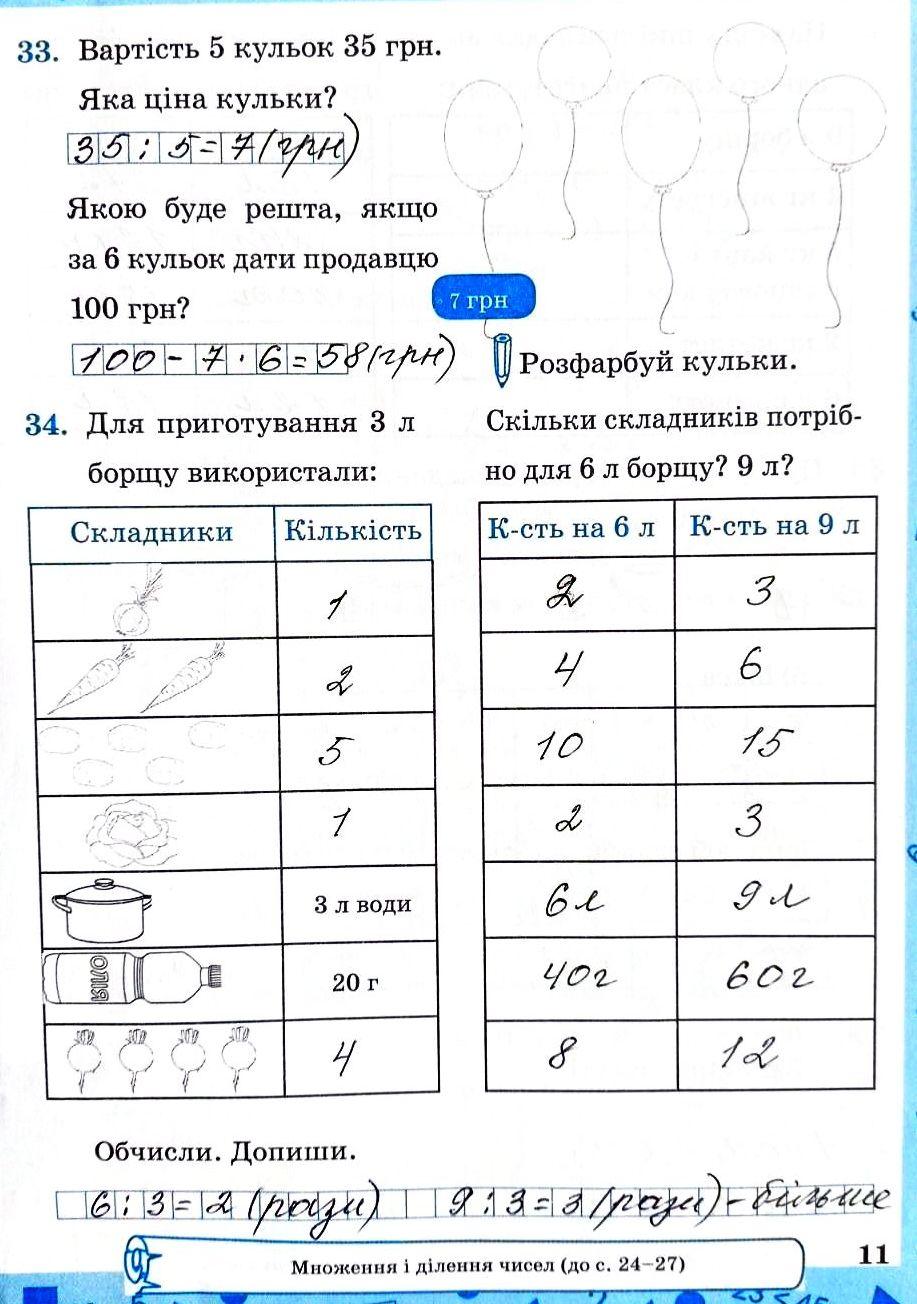 33. Вартість 5 кульок 35 грн.
Яка ціна кульки?
35 : 5 = 7 (грн)
Якою буде решта, якщо
за 6 кульок дати продавцю
100 грн?
7 грн
100 - 7 · 6 = 58 (грн)
Розфарбуй кульки.
34. Для приготування 3 л
борщу використали:
Скільки складників потріб-
но для 6 л борщу? 9 л?
Складники Кількість К-сть на 6 л К-сть на 9 л
1 2 3
2 4 6
5 10 15
1 2 3
3 л води 6 л 9 л
ОЛІЯ 20 г 40 г 60 г
4 8 12
Обчисли. Допиши.
6 : 3 = 2 (рази) 9 : 3 = 3 (рази) - більше
Множення і ділення чисел (до с. 24–27)
11